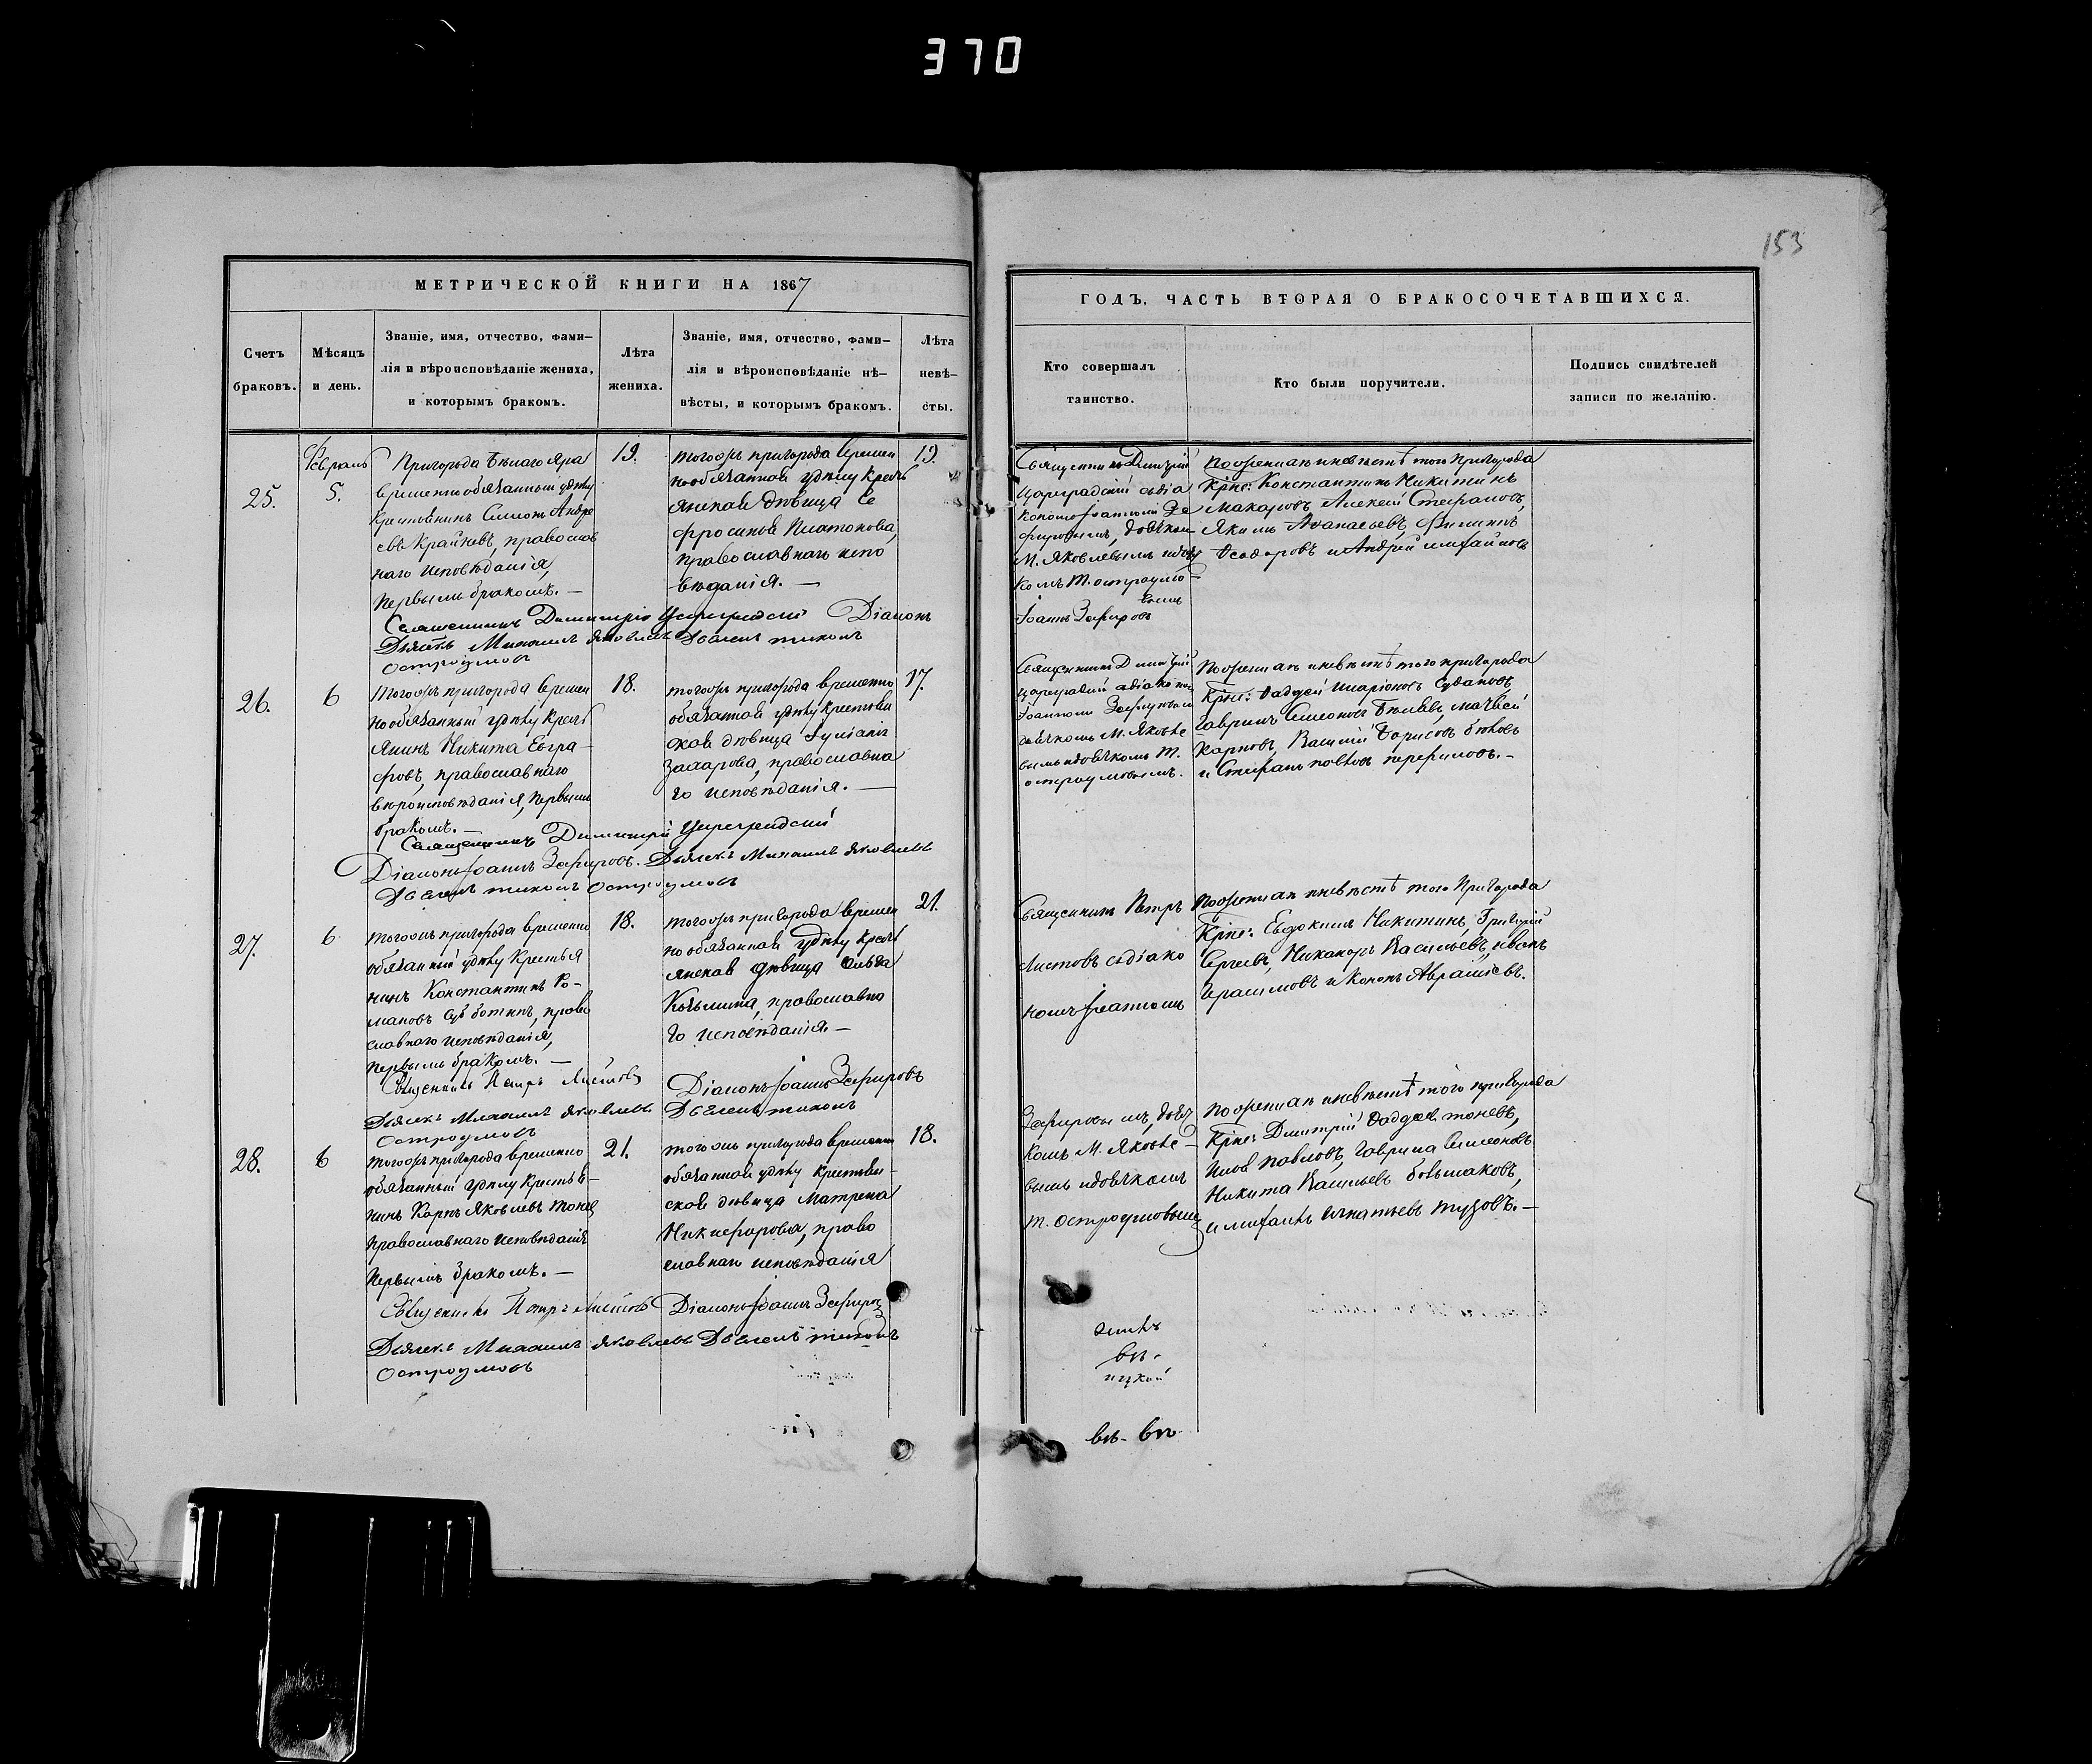 370
153
МЕТРИЧЕСКОЙ КНИГИ НА 1867
ГОДЪ, ЧАСТЬ ВТОРАЯ О БРАКОСОЧЕТАВШИХСЯ.
Счетъ
браковъ.
Мѣсяцъ
и день.
Званіе, имя, отчество, фами–
лія и вѣроисповѣданіе жениха,
и которымъ бракомъ.
Лѣта
жениха.
Званіе, имя, отчество, фами–
лія и вѣроисповѣданіе нѣ–
вѣсты, и которымъ бракомъ.
Лѣта
невѣ–
сты.
Кто совершалъ
таинство.
Кто были поручители.
Подпись свидѣтелей
записи по желанію.
25.
Февраль
5.
Пригорода Бѣлаго Яра
временнообязанный удѣлу
Крестьянинъ Симеонъ Андре
евъ Крайневъ, православ
наго исповѣданія,
первымъ бракомъ. —
19.
тогожъ пригорода времен
нообязанная удѣлу кресть
янская дѣвица Ев
фросинья Платонова,
православнаго испо
вѣданія. —
19.
Священникъ Димитрій
Цареградскій съ діа
кономъ Іоанномъ Зе
фировымъ, дьячкомъ
М. Яковлевымъ и дьяч
комъ Т. Остроумо
вымъ
Іоаннъ Зефировъ
по женихѣ и невѣстѣ того пригорода
Крне: Константинъ Никитинъ
Макаровъ, Алексѣй Стефановъ,
Якимъ Аѳанасьевъ, Филиппъ
Ѳеодоровъ и Андрей Михайловъ
Священникъ Димитрій Цареградскій Діаконъ
Дьячекъ Михаилъ Яковлевъ Дьячекъ Тихонъ
Остроумовъ
26.
6
тогожъ пригорода времен
нообязанный удѣлу кресть
янинъ Никита Евгра–
фовъ, православнаго
вѣроисповѣданія, первымъ
бракомъ. —
18.
тогожъ пригорода временно
обязанная удѣлу крестьян
ская дѣвица Іуліанія
Захарова, православна
го исповѣданія. —
17.
Священникъ Димитрій
Цареградскій съ діакономъ
Іоанномъ Зефировымъ
дьячкомъ М. Яковле
вымъ и дьячкомъ Т.
Остроумовымъ.
по женихѣ и невѣстѣ того пригорода
Крне: Ѳаддей Иларіоновъ Судаковъ,
Гаврилъ Симеоновъ Бѣляевъ, Матвей
Карповъ, Василій Борисовъ Быковъ
и Стефанъ Павловъ Перфиловъ. –
Священникъ Димитрій Цареградскій
Діаконъ Іоаннъ Зефировъ. Дьячекъ Михаилъ Яковлевъ
Дьячекъ Тихонъ Остроумовъ
27.
6
тогожъ пригорода временно
обязанный удѣлу Крестья
нинъ Константинъ Ро–
мановъ Субботинъ, право
славнаго исповѣданія,
первымъ бракомъ. —
18.
тогожъ пригорода времен
но обязанная удѣлу кресть
янская дѣвица Ольга
Козьмина, православна
го исповѣданія. —
21.
Священникъ Петръ
Листовъ съ діако
номъ Іоанномъ
по женихѣ и невѣстѣ того пригорода
Крне: Евдокимъ Никитинъ, Григорій
Сергеевъ, Никаноръ Васильевъ, Иванъ
Герасимовъ и Кононъ Аврамьевъ.
Священникъ Петръ Листовъ Діаконъ Іоаннъ Зефировъ
Дьячекъ Михаилъ Яковлевъ Дьячекъ Тихонъ
Остроумовъ
28.
6
тогожъ пригорода временно
обязанный удѣлу крестья–
нинъ Карпъ Яковлевъ
православнаго исповѣданія
первымъ бракомъ. —
21.
тогожъ пригорода временно
обязанная удѣлу крестьян–
ская дѣвица Матрена
Никифорова, право
славнаго исповѣданія
18.
Зефировымъ, дьяч
комъ М. Яковле–
вымъ и дьячкомъ
Т. Остроумовымъ
по женихѣ и невѣстѣ того пригорода
Крне: Димитрій Ѳаддеевъ Тоневъ,
Павловъ, Гаврила Симеоновъ
Никита Васильевъ Большаковъ,
и Михаилъ Игнатьевъ Тузовъ. —
Священникъ Петръ Листовъ Діаконъ Іоаннъ Зефировъ
Дьячекъ Михаилъ Яковлевъ Дьячекъ Тихонъ
Остроумовъ